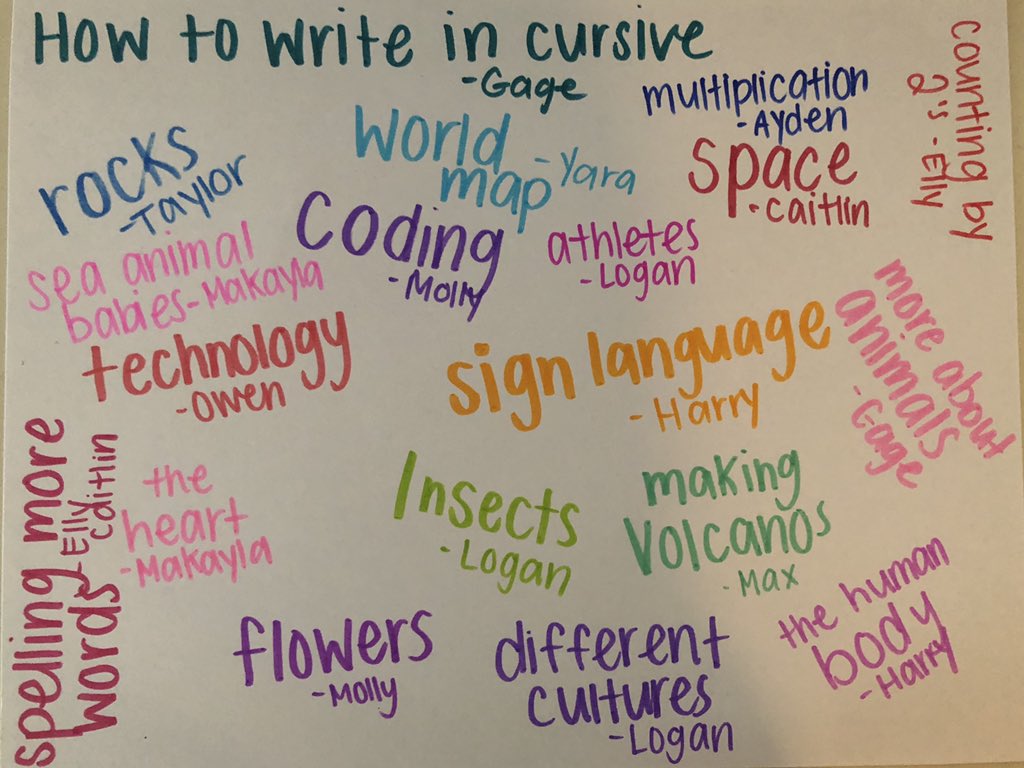 How to write in cursive
-Gage
multiplication
-Ayden
counting by
2's -Elly
World
map -Yara
rocks
-Taylor
space
-caitlin
coding
-Molly
athletes
-Logan
sea animal
babies-Makayla
technology
-owen
sign language
-Harry
more about
animals
-Gage
spelling more
words
-Elly
caitlin
the
heart
-Makayla
Insects
-Logan
making
Volcanos
-Max
flowers
-Molly
different
cultures
-Logan
the human
body
-Harry